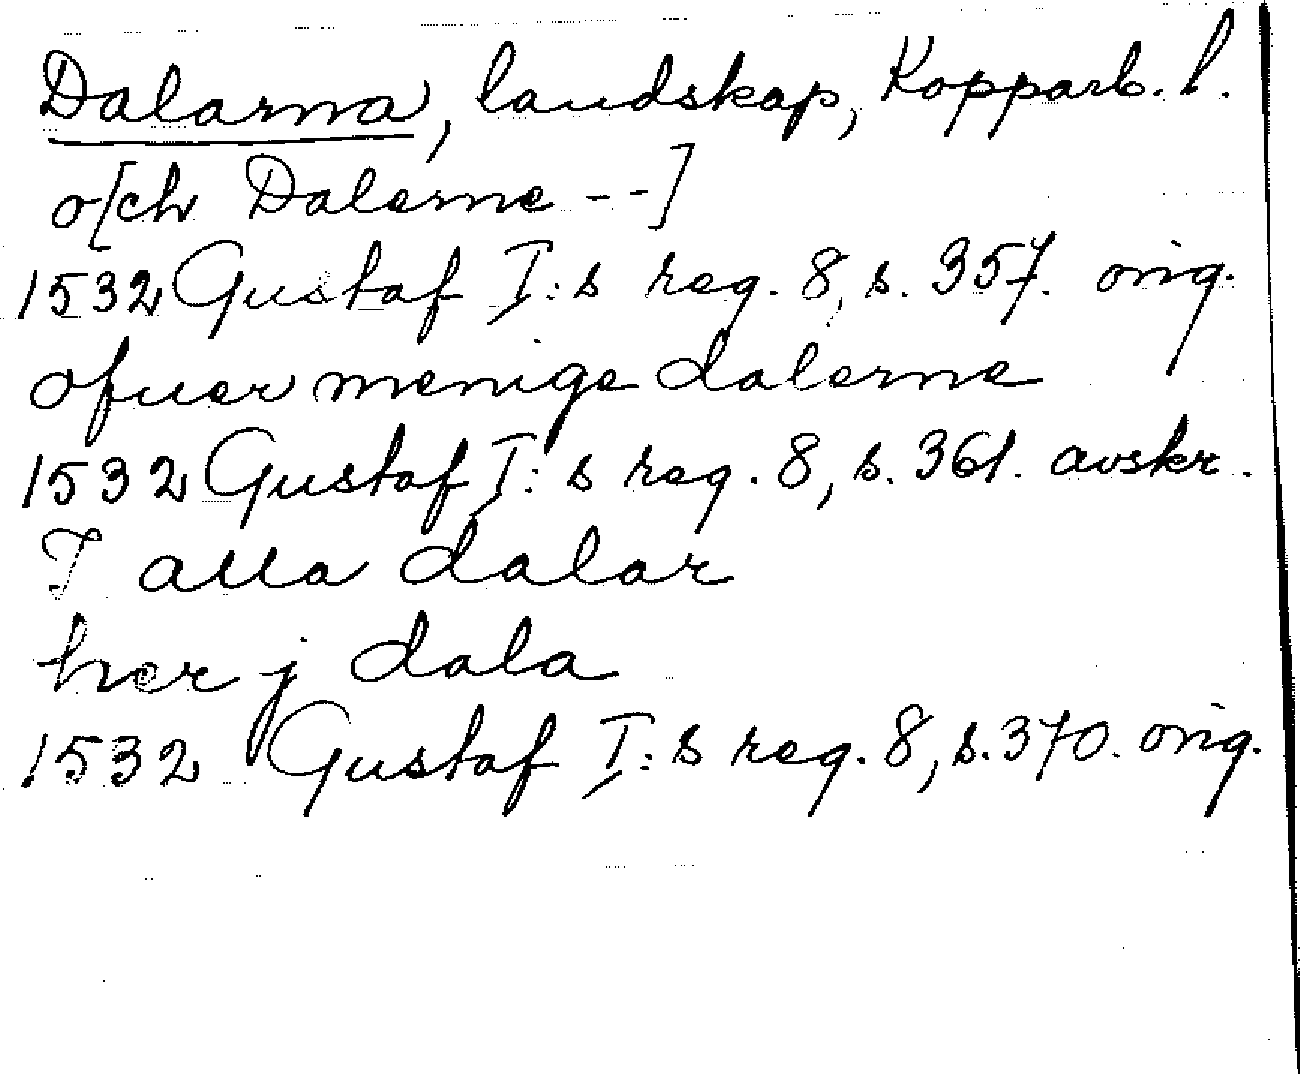 Dalarna, landskap, Kopparb. l.
o[ch Dalerne --]
1532 Gustaf I:s reg. 8, s. 357. orig.
ofuer menige dalerne
1532 Gustaf I:s reg. 8, s. 361. avskr.
I alla dalar
her j dala
1532 Gustaf I:s reg. 8, s. 370. orig.